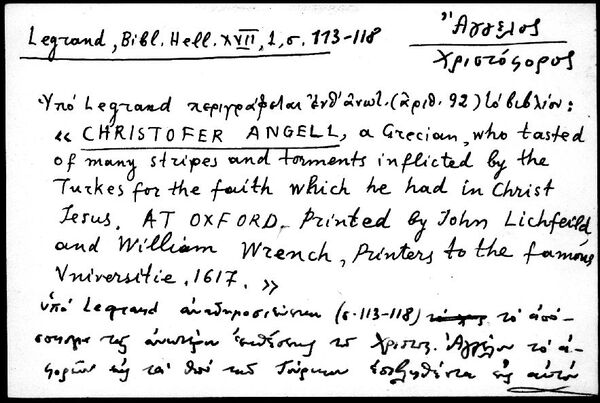 Legrand, Bibl. Hell. XVII, 1, σ. 113-118
Ἄγγελος
Χριστόφορος
Ὑπὸ Legrand περιγράφεται ἐνθ' ἀνωτ. (ἀριθ. 92) τὸ βιβλίον:
« CHRISTOFER ANGELL, a Grecian, who tasted
of many stripes and torments inflicted by the
Turkes for the faith which he had in Christ
Jesus. AT OXFORD. Printed by John Lichfeild
and William Wrench, Printers to the famous
Vniversitie. 1617. »
ὑπὸ Legrand ἀναδημοσιεύεται (σ. 113-118) τὸ ἀπό-
σπασμα τῆς ἀνωτέρω ἐκθέσεως τοῦ Χριστοφ. Ἀγγέλου τὸ ἀ-
φορῶν εἰς τὰ ὑπὸ τῶν Τούρκων ἐπιβληθέντα εἰς αὐτὸν